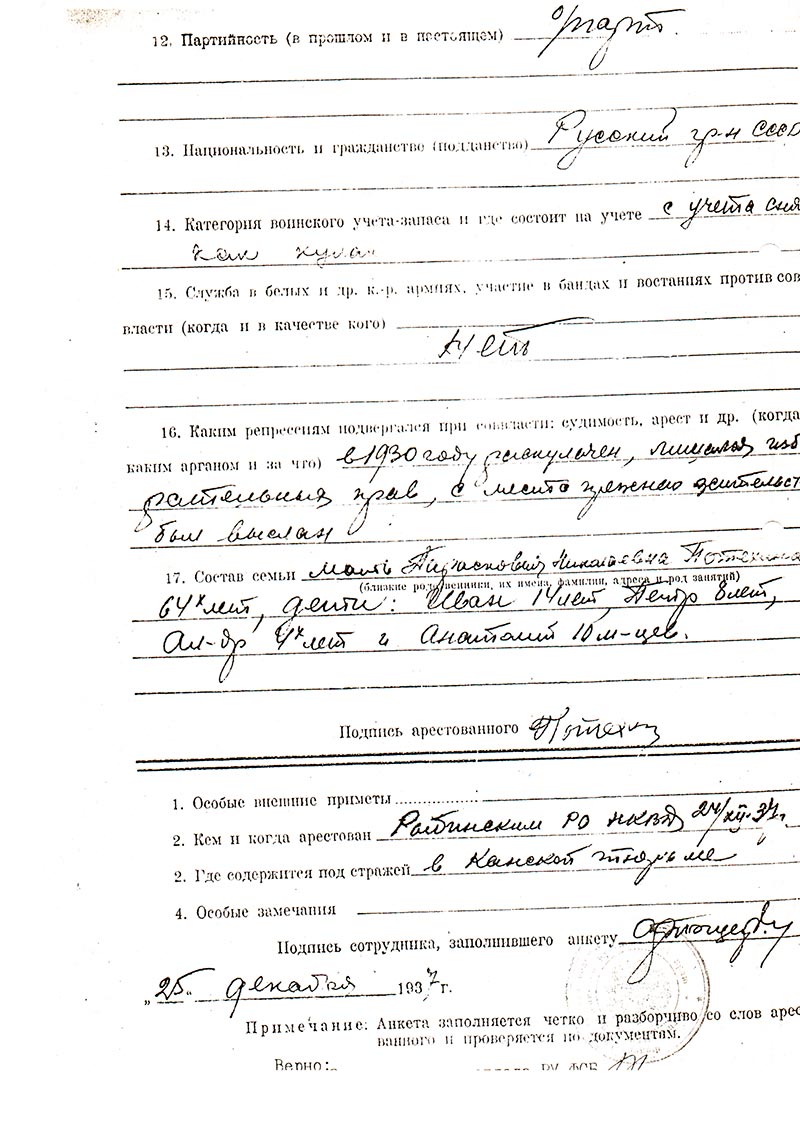 12. Партийность (в прошлом и в настоящем) б/парт.
13. Национальность и гражданство (подданство) Русский гр-н СССР
14. Категория воинского учета-запаса и где состоит на учете с учета сня
как кулак
15. Служба в белых и др. к.-р. армиях, участие в бандах и востаниях против сов
власти (когда и в качестве кого)
Нет
16. Каким репрессиям подвергался при совласти: судимость, арест и др. (когда
каким арганом и за что) в 1930 году раскулачен, лишался изб
рательных прав, с места прежнего жительст
был выслан
17. Состав семьи мать Николаевна Потехина
(близкие родственники, их имена, фамилии, адреса и род занятий)
64х лет, дети: Иван 14 лет, Петр 8 лет,
Ал-др 4х лет и Анатолий 10 м-цев.
Подпись арестованного Потехин
1. Особые внешние приметы
2. Кем и когда арестован РО НКВД 24/XII-37г.
2. Где содержится под стражей в Канской тюрьме
4. Особые замечания
Подпись сотрудника, заполнившего анкету
„25“ декабря 1937 г.
Примечание: Анкета заполняется четко и разборчиво со слов арес
ванного и проверяется по документам.
Верно: РУ ФСБ